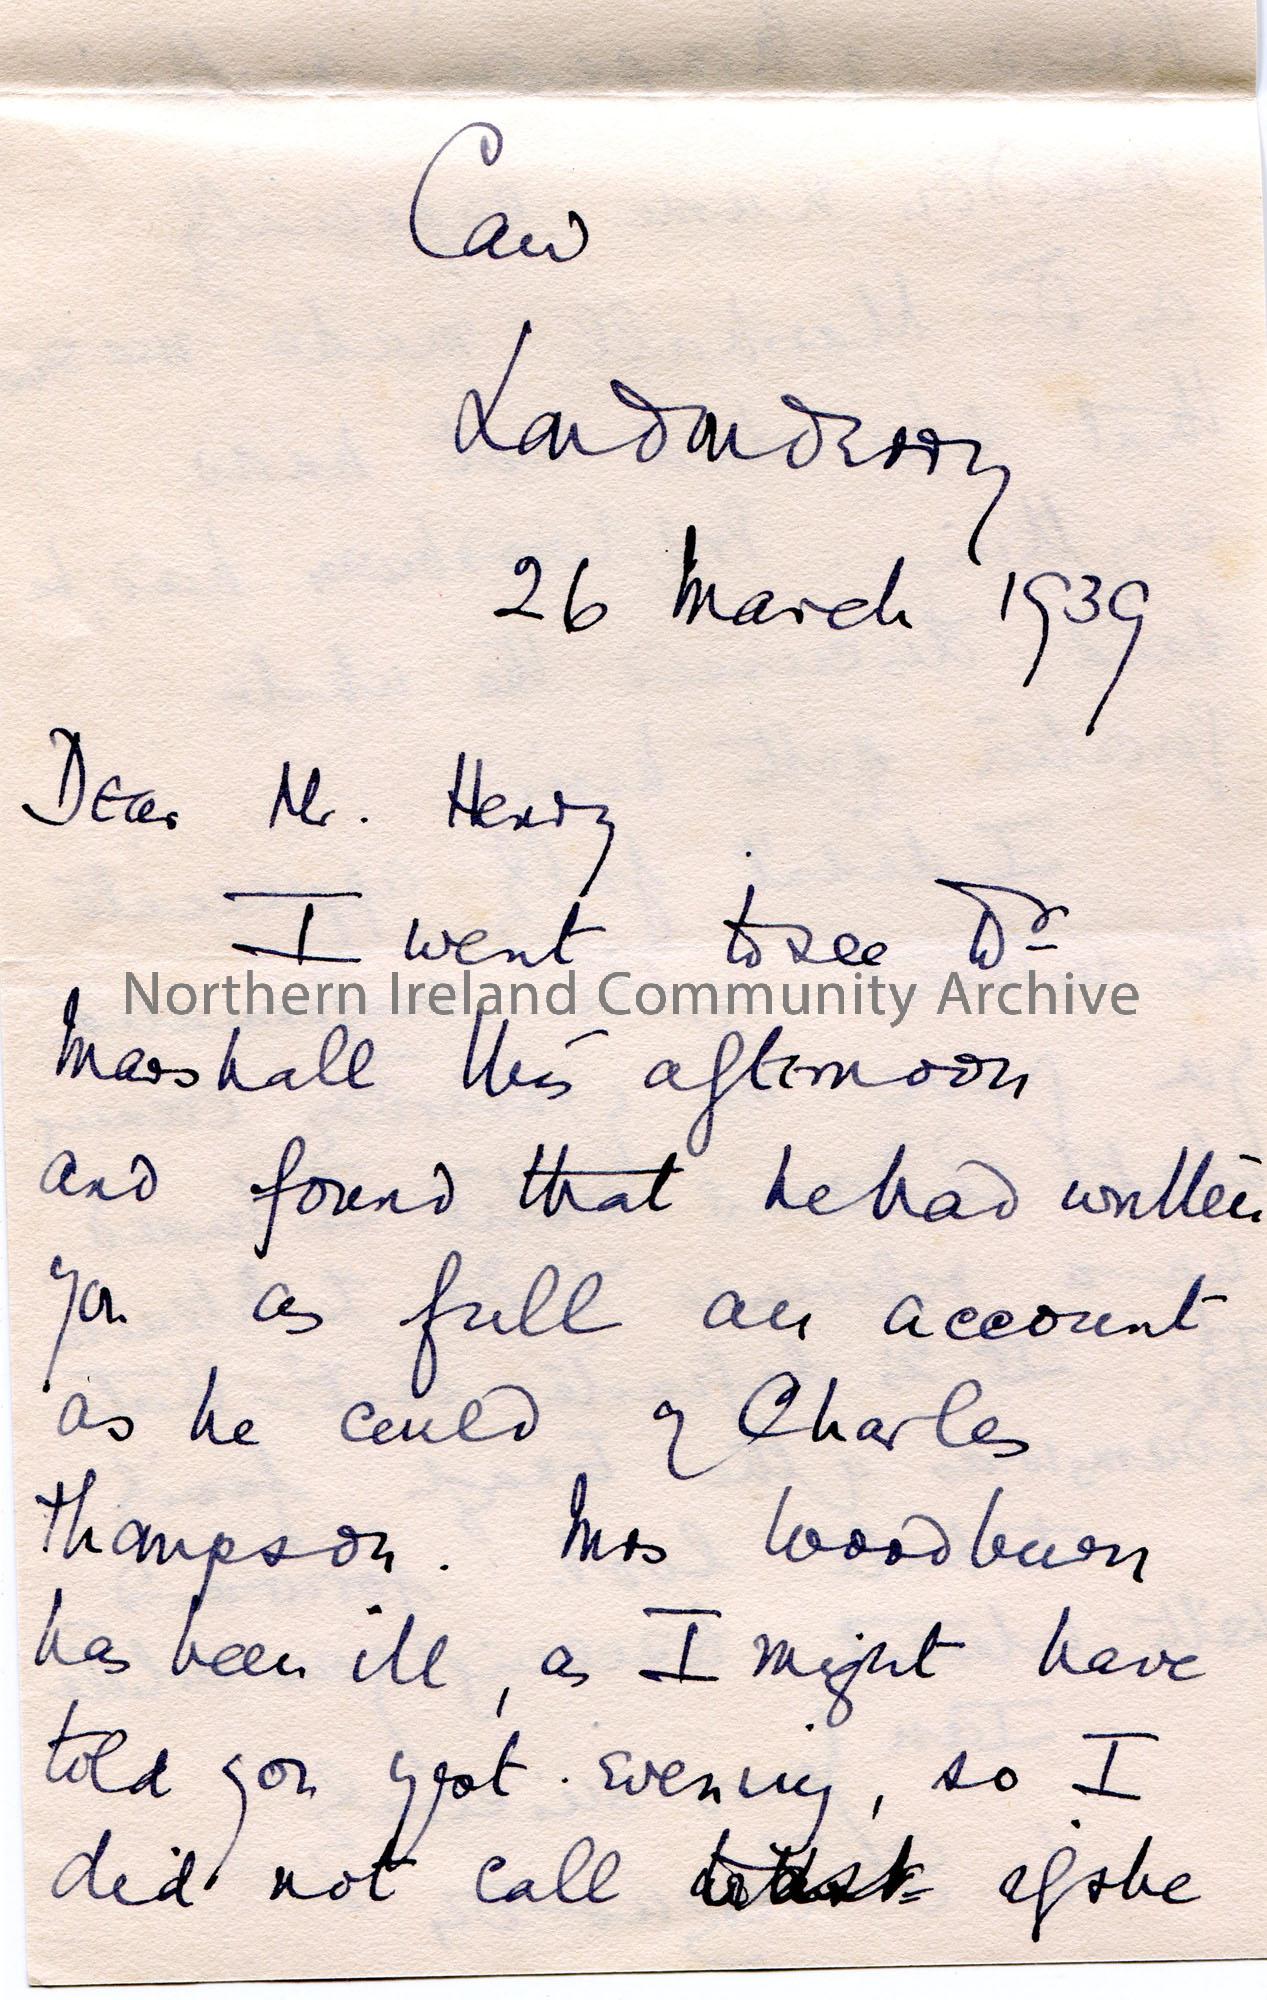 Caw
Londonderry
26 March 1939
Dear Mr. Henry
I went to see Dr
Northern Ireland Community Archive
Marshall this afternoon
and found that he had written
you as full an account
as he could of Charles
Thompson. Mrs Woodburn
has been ill, as I might have
told you yest. evening, so I
did not call to ask if she